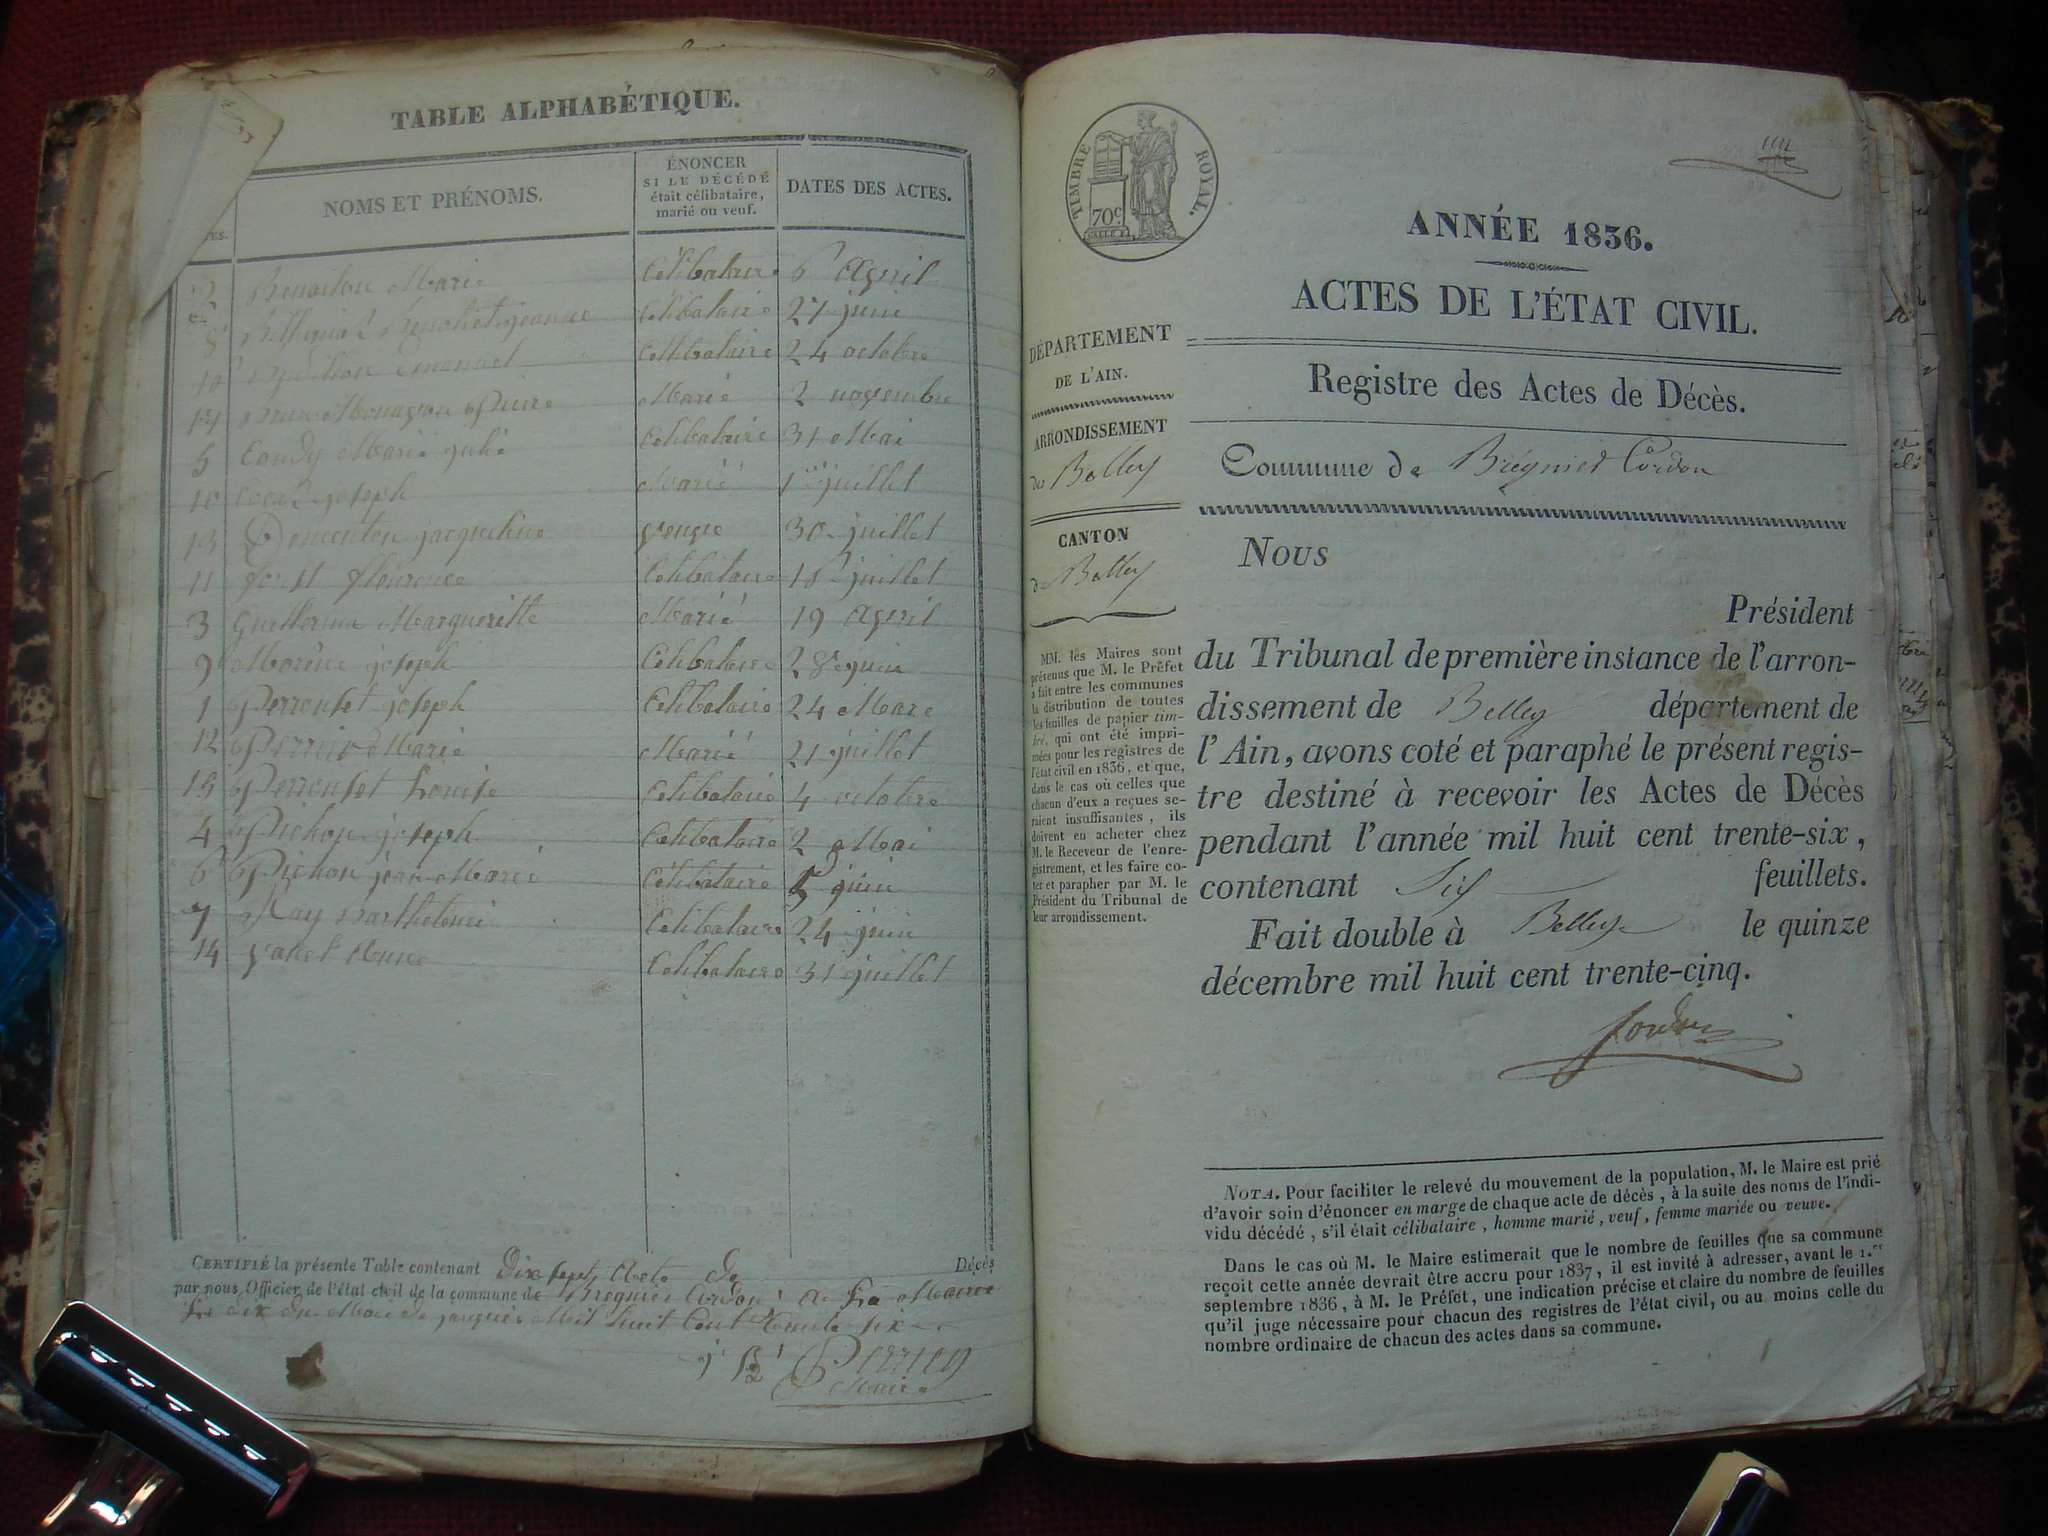 TABLE ALPHABÉTIQUE.
NOMS ET PRÉNOMS.
ÉNONCER
SI LE DÉCÉDÉ
était célibataire,
marié ou veuf.
DATES DES ACTES.
2 Marie Celibataire 6 Avril
8 jeanne Celibataire 27 juin
Celibataire 24 octobre
Marié 2 novembre
5 Candy Marie julie Celibataire 31 Mai
10 joseph Marié 1er juillet
13 Dementon jacqueline veuve 30 juillet
11 Celibataire 18 juillet
3 Guillermin Margueritte Marié 19 Avril
9 joseph Celibataire 28 juin
1 Perrousset joseph Celibataire 24 Mars
12 Marie Marié 21 juillet
15 Perrousset Louise Celibataire 4 octobre
4 Pichon joseph Celibataire 2 Mai
6 Pichon jean Marie Celibataire 5 juin
7 Ray Barthelemi Celibataire 24 juin
14 Anne Celibataire 31 juillet
CERTIFIÉ la présente Table contenant Dix sept Acte de Décès
par nous Officier de l'état civil de la commune de Bregnier Cordon à La Mairie
Le dix du Mois de janvier Mil huit Cent Trente six
Perrien
Maire
TIMBRE ROYAL.
70c
ANNÉE 1836.
ACTES DE L'ÉTAT CIVIL.
Registre des Actes de Décès.
Commune de Brégnier Cordon
DÉPARTEMENT
DE L'AIN.
ARRONDISSEMENT
de Belley
CANTON
de Belley
MM. les Maires sont
prévenus que M. le Préfet
a fait entre les communes
la distribution de toutes
les feuilles de papier tim-
bré, qui ont été impri-
mées pour les registres de
l'état civil en 1836, et que,
dans le cas où celles que
chacun d'eux a reçues se-
raient insuffisantes, ils
doivent en acheter chez
M. le Receveur de l'enre-
gistrement, et les faire co-
ter et parapher par M. le
Président du Tribunal de
leur arrondissement.
NOUS
Président
du Tribunal de première instance de l'arron-
dissement de Belley département de
l'Ain, avons coté et paraphé le présent regis-
tre destiné à recevoir les Actes de Décès
pendant l'année mil huit cent trente-six,
contenant Six feuillets.
Fait double à Belley le quinze
décembre mil huit cent trente-cinq.
NOTA. Pour faciliter le relevé du mouvement de la population, M. le Maire est prié
d'avoir soin d'énoncer en marge de chaque acte de décès, à la suite des noms de l'indi-
vidu décédé, s'il était célibataire, homme marié, veuf, femme mariée ou veuve.
Dans le cas où M. le Maire estimerait que le nombre de feuilles que sa commune
reçoit cette année devrait être accru pour 1837, il est invité à adresser, avant le 1.er
septembre 1836, à M. le Préfet, une indication précise et claire du nombre de feuilles
qu'il juge nécessaire pour chacun des registres de l'état civil, ou au moins celle du
nombre ordinaire de chacun des actes dans sa commune.